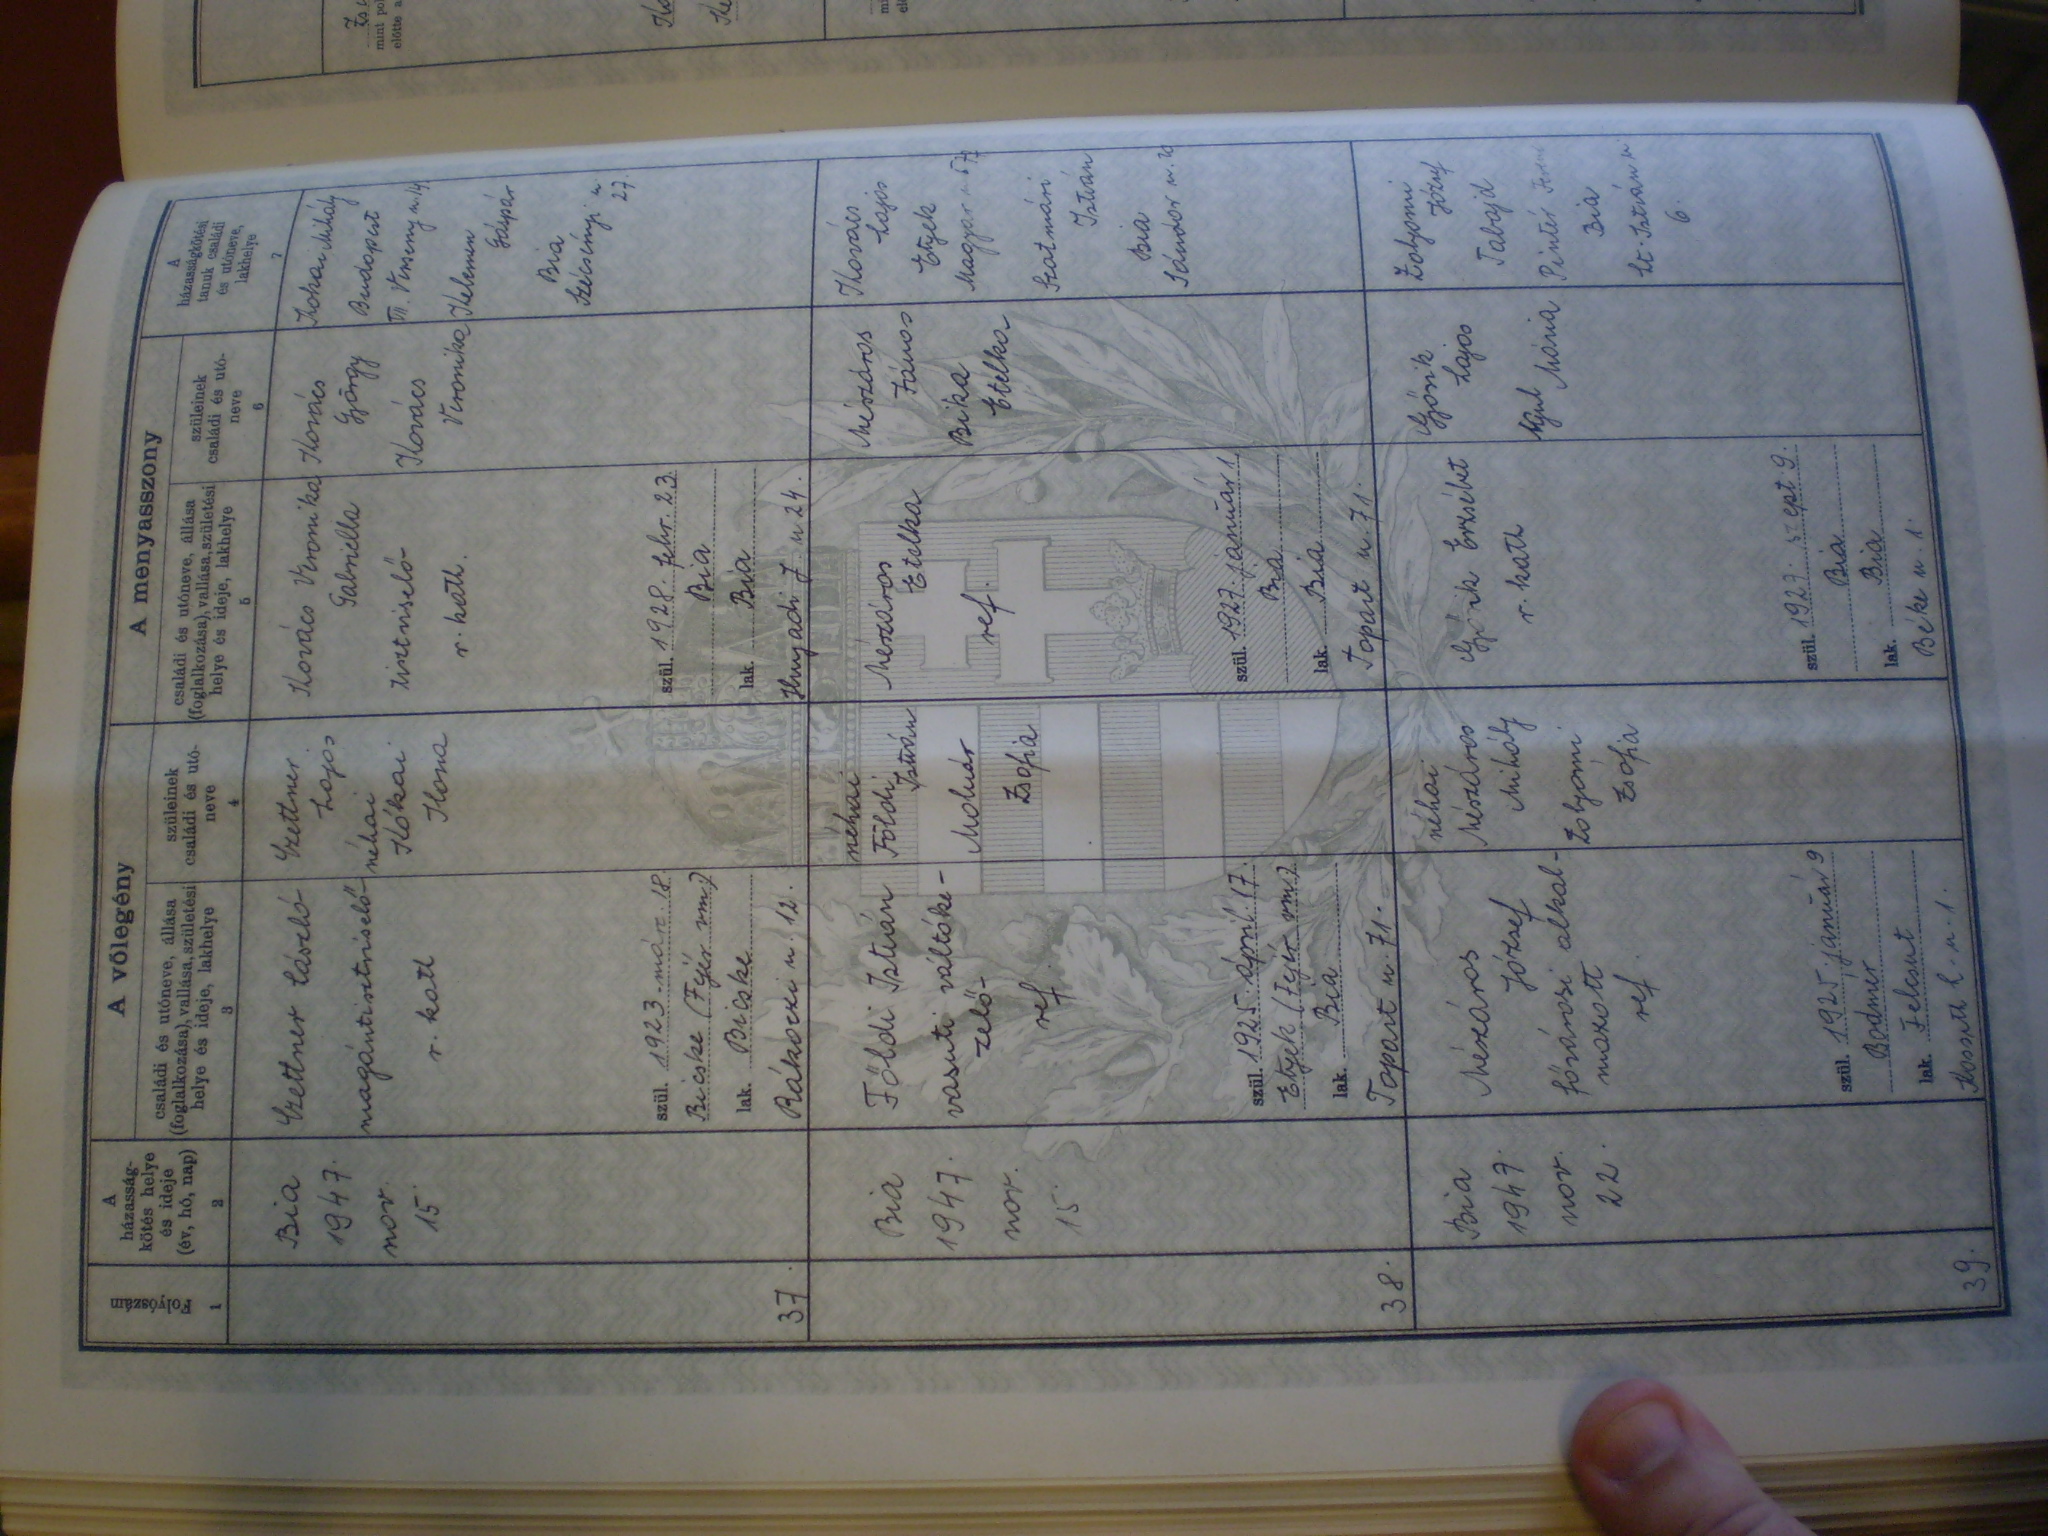 A vőlegény
A menyasszony
Folyószám
A
házasság-
kötés helye
és ideje
(év, hó, nap)
családi és utóneve, állása
(foglalkozása), vallása, születési
helye és ideje, lakhelye
szüleinek
családi és utó-
neve
családi és utóneve, állása
(foglalkozása), vallása, születési
helye és ideje, lakhelye
szüleinek
családi és utó-
neve
A
házasságkötési
tanuk családi
és utóneve,
lakhelye
1
2
3
4
5
6
7
37.
Bia
1947.
nov.
15.
László
magántisztviselő
r. kath
szül. 1923. márc. 18
Bicske (Fejér vm.)
lak. Bicske
Rákóczi u. 12.
Lajos
néhai
Kókai
Ilona
Kovács Veronika
Gabriella
tisztviselő-
r. kath.
szül. 1928. febr. 23.
Bia
lak. Bia
Hunyadi J. u 24.
Kovács
György
Kovács
Veronika
Kókai Mihály
Budapest
VII. Verseny u. 14
Kelemen
Gáspár
Bia
Széchenyi u.
27.
38.
Bia
1947.
nov.
15.
Földi István
vasuti váltóke-
zelő-
ref.
szül. 1925. április 17.
Etyek (Fejér vm.)
lak. Bia
Topart u. 71.
néhai
Földi
István
Molnár
Zsófia
Mészáros
Etelka
ref.
szül. 1927. január 1.
Bia
lak. Bia
Topart u. 71.
Mészáros
János
Bika
Etelka
Kovács
Lajos
Etyek
Magyar u.
Szatmári
István
Bia
Sándor u. 20
39.
Bia
1947.
nov.
22.
Mészáros
József
fővárosi alkal-
mazott
ref.
szül. 1925. január 9
Bodmér
lak. Felcsut
Kossuth L. u. 1.
néhai
Mészáros
Mihály
Zolyomi
Zsófia
Erzsébet
r. kath
szül. 1927. szept 9.
Bia
lak. Bia
Béke u. 1.
Lajos
Mária
Zolyomi
József
Tabajd
Pintér
Bia
Szt. István u
6.